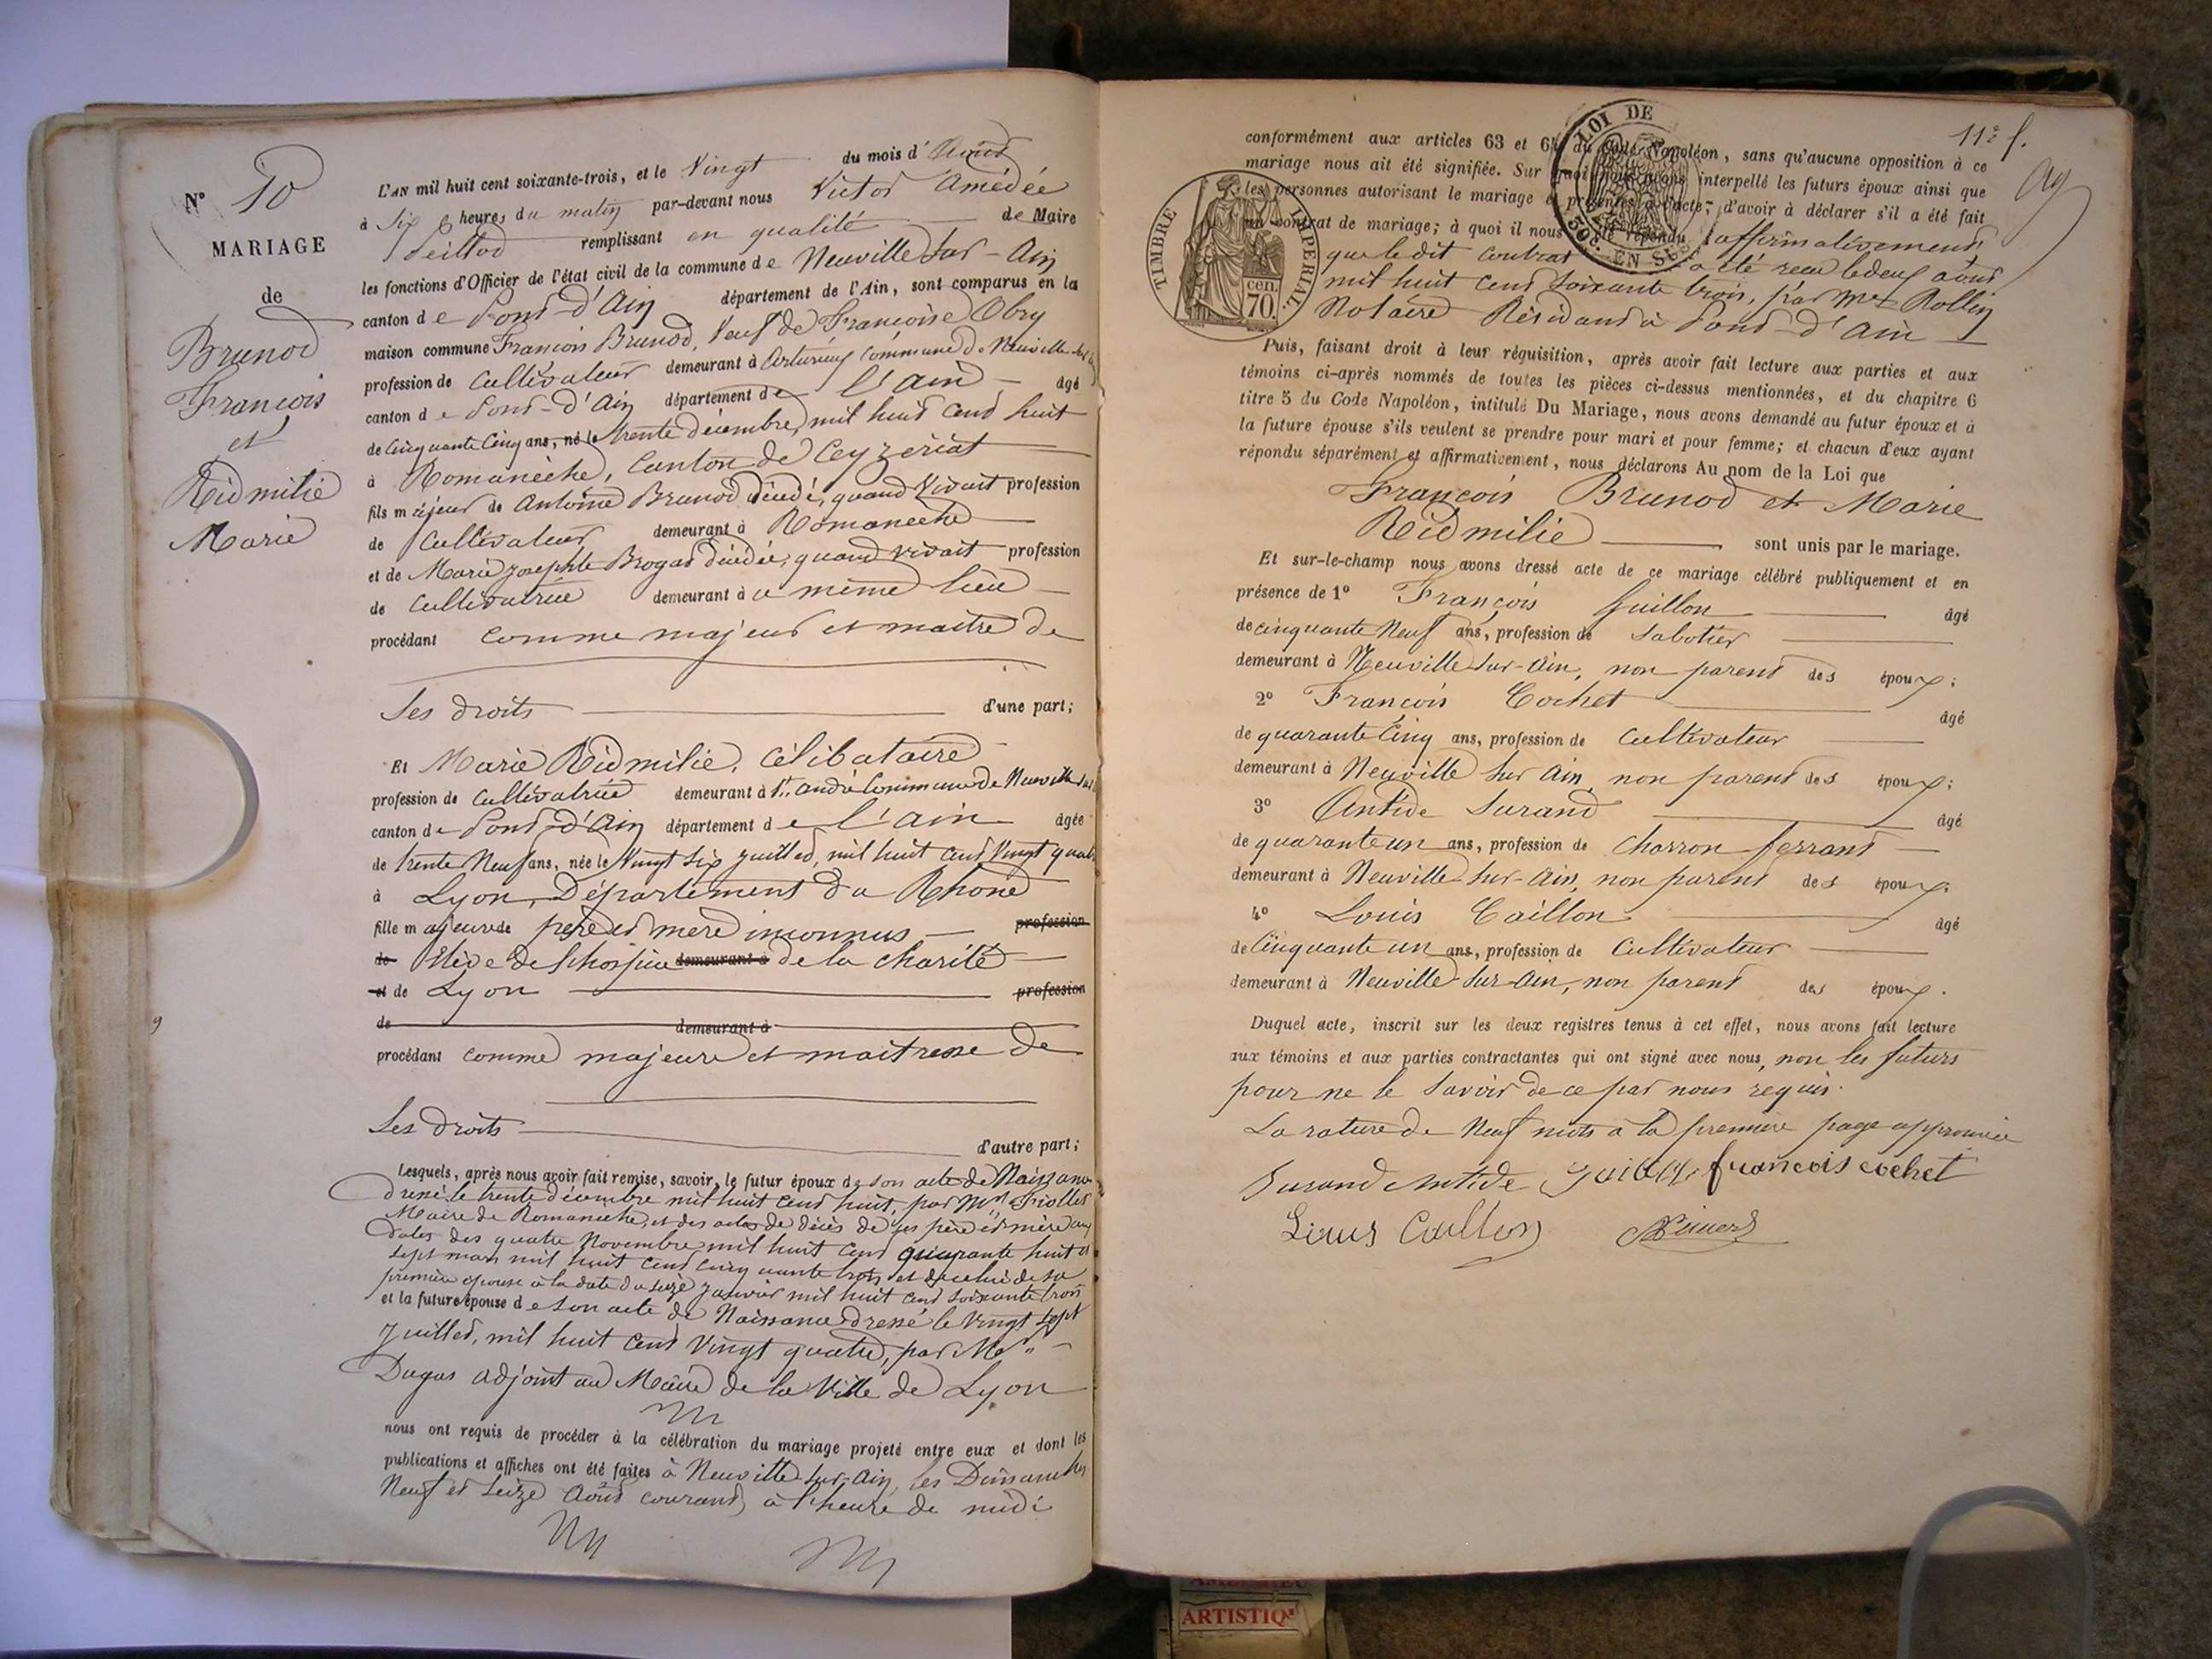 N° 10
MARIAGE
de
Brunod
François
et
Ridmilie
Marie
L'AN mil huit cent soixante-trois, et le Vingt du mois d'Août
à Six heures du matin par-devant nous Victor Amédée
remplissant en qualité de Maire
les fonctions d'Officier de l'état civil de la commune de Neuville sur-Ain
canton de Pont-d'Ain département de l'Ain, sont comparus en la
maison commune François Brunod, Veuf de Françoise Obry
profession de Cultivateur demeurant à commune de Neuville sur
canton de Pont-d'Ain département de l'Ain âgé
de Cinquante Cinq ans, né le trente décembre, mil huit cent huit
à Romanèche, Canton de Ceyzériat
fils majeur de Antoine Brunod décédé, quand vivait profession
de Cultivateur demeurant à Romanèche
et de Marie Josephte Brogat décédée, quand vivait profession
de Cultivatrice demeurant au même lieu
procédant comme majeur et maître de
Ses droits d'une part;
Et Marie Ridmilie, Célibataire
profession de Cultivatrice demeurant à St. André Commune de Neuville sur
canton de Pont-d'Ain département de l'Ain âgée
de trente Neuf ans, née le Vingt Six Juillet, mil huit cent Vingt quatre
à Lyon, Département du Rhône
fille majeure de père et mère inconnus profession
de Elève de l'hospice demeurant à de la charité
et de Lyon profession
de demeurant à
procédant comme majeure et maitresse de
Ses droits d'autre part;
Lesquels, après nous avoir fait remise, savoir, le futur époux de son acte de Naissance
dressé le trente décembre mil huit cent huit, par Mr.
Maire de Romanèche, et des actes de décès de ses père et mère aux
dates des quatre Novembre mil huit cent quarante huit et
sept mars mil huit cent cinquante trois et de celui de sa
première épouse à la date du seize Janvier mil huit cent soixante trois
et la future épouse de son acte de Naissance dressé le Vingt Sept
Juillet, mil huit cent Vingt quatre, par Mr.
Dugas adjoint au Maire de la Ville de Lyon
nous ont requis de procéder à la célébration du mariage projeté entre eux et dont les
publications et affiches ont été faites à Neuville sur-Ain, les Dimanches
Neuf et Seize Août courant, à l'heure de midi
11e f.
conformément aux articles 63 et 64 du Code Napoléon, sans qu'aucune opposition à ce
mariage nous ait été signifiée. Sur quoi nous avons interpellé les futurs époux ainsi que
les personnes autorisant le mariage et présentes à l'acte, d'avoir à déclarer s'il a été fait
un contrat de mariage; à quoi il nous a été répondu affirmativement
que le dit contrat a été reçu le deux août
mil huit cent soixante trois, par Me Rollin
Notaire Résidant à Pont-d'Ain
TIMBRE IMPERIAL
cen. 70.
LOI DE
EN SUS
Puis, faisant droit à leur réquisition, après avoir fait lecture aux parties et aux
témoins ci-après nommés de toutes les pièces ci-dessus mentionnées, et du chapitre 6
titre 5 du Code Napoléon, intitulé Du Mariage, nous avons demandé au futur époux et à
la future épouse s'ils veulent se prendre pour mari et pour femme; et chacun d'eux ayant
répondu séparément et affirmativement, nous déclarons Au nom de la Loi que
François Brunod et Marie
Ridmilie sont unis par le mariage.
Et sur-le-champ nous avons dressé acte de ce mariage célébré publiquement et en
présence de 1° François Guillon âgé
de cinquante Neuf ans, profession de Sabotier
demeurant à Neuville sur-Ain, non parent des époux;
2° François Cochet âgé
de quarante Cinq ans, profession de Cultivateur
demeurant à Neuville sur Ain, non parent des époux;
3° Antide Durand âgé
de quarante un ans, profession de Charron ferrant
demeurant à Neuville sur-Ain, non parent des époux.
4° Louis Caillon âgé
de Cinquante un ans, profession de Cultivateur
demeurant à Neuville sur-Ain, non parent des époux.
Duquel acte, inscrit sur les deux registres tenus à cet effet, nous avons fait lecture
aux témoins et aux parties contractantes qui ont signé avec nous, non les futurs
pour ne le savoir de ce par nous requis.
La rature de Neuf mots à la première page approuvée
Durand Antide françois cochet
ARTISTIQ